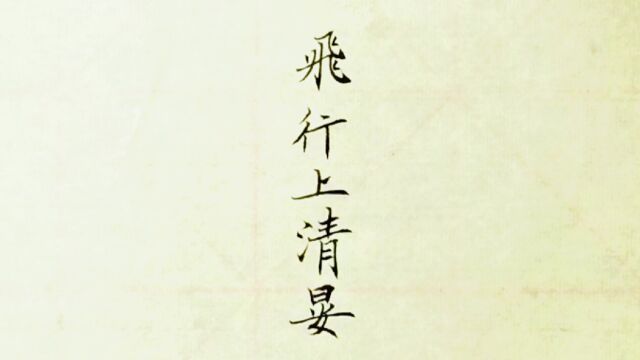 飛行上清晏